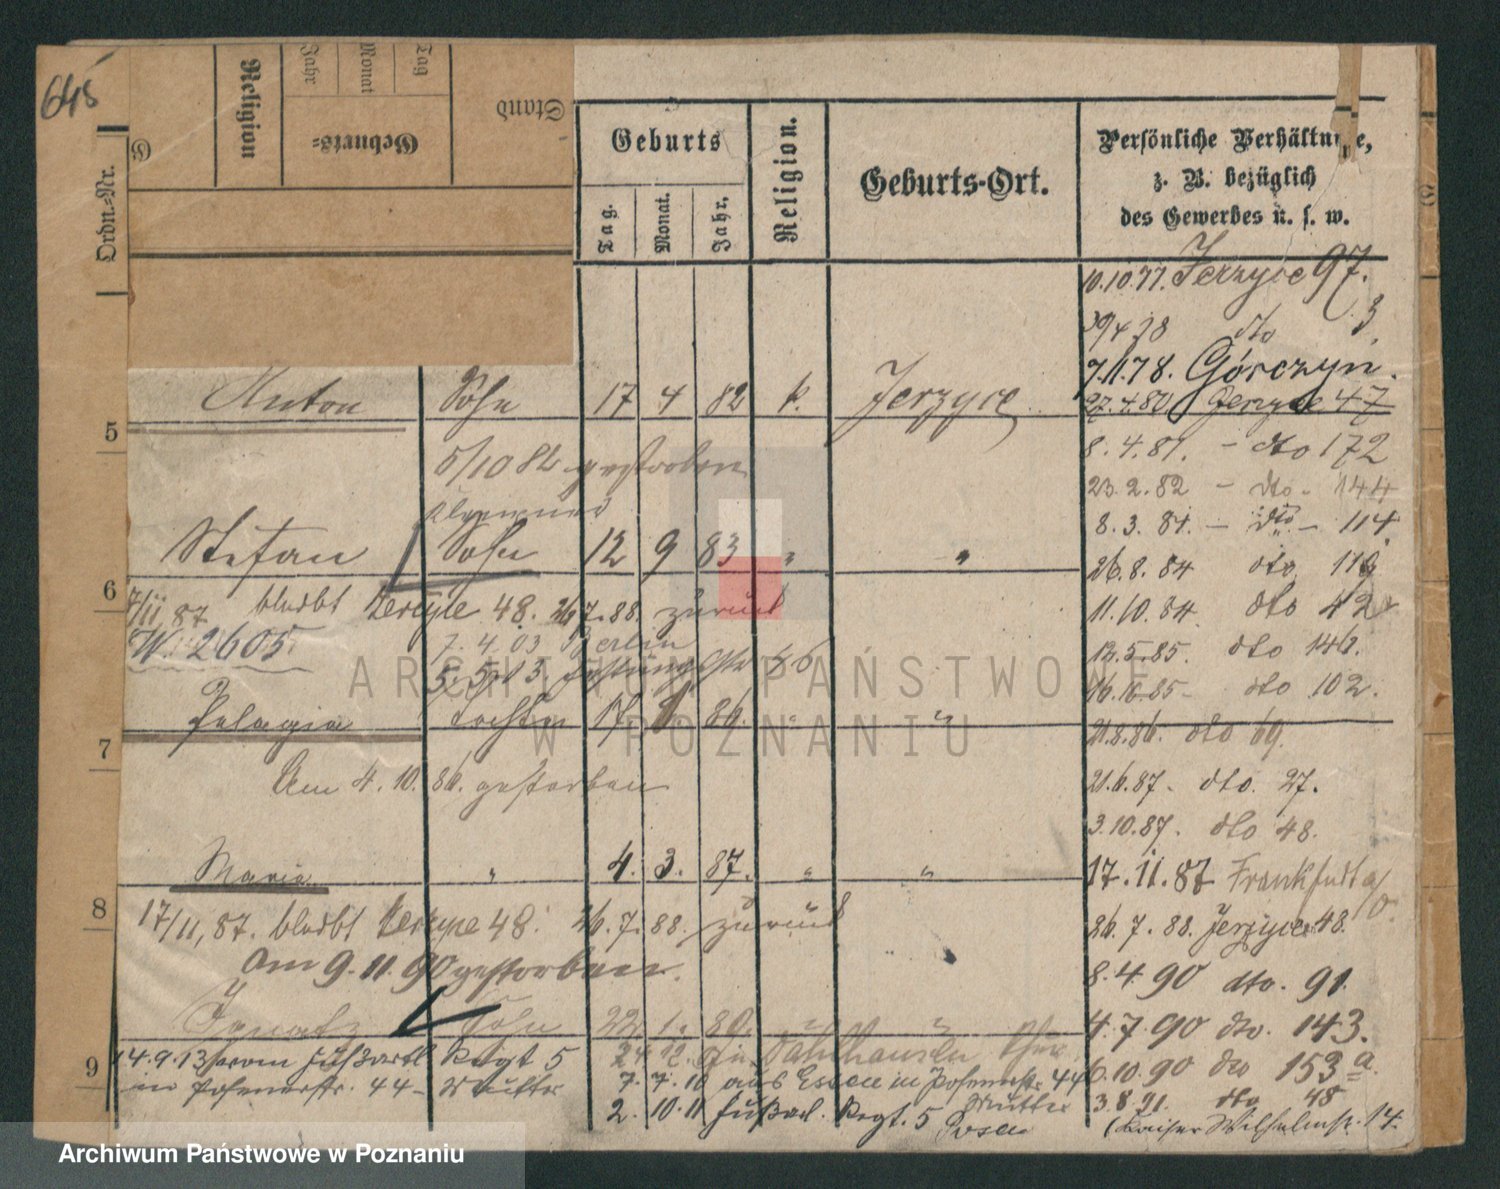 645
Ordn.-Nr.
Religion
Jahr
Monat
Tag
Geburts-
Stand
Geburts
Tag.
Monat.
Jahr.
Religion.
Geburts-Ort.
Persönliche Verhältnisse,
z. B. bezüglich
des Gewerbes u. s. w.
10.10.77. Jerzyce 97.
30/4 78 dto 3.
7.11.78. Górczyn.
27.4.80 Jerzyce 47
Anton Sohn 17 4 82 k. Jerzyce
5
8.4.81. - dto 172
5/10 82 gestorben
23.2.82 - dto. 144
8.3.84. - dto - 114.
Stefan Sohn 12 9 83 " "
26.8.84 dto 119
6
7/11 87 bleibt Jerzyce 48. 26/7.88 zurück
11.10.84. dto 42
W. 2605.
7.4.03 Berlin
12.5.85. dto 146.
5.5.13
16.10.85 - dto 102.
Pelagia Tochter 17 8 86. " "
21.8.86. dto 69.
7
Am 4.10.86. gestorben
21.6.87. dto. 27.
3.10.87. dto 48.
Maria " 4. 3. 87. " "
17.11.87 Frankfurt a/O.
8
17/11.87. bleibt Jerzyce 48. 26.7.88 zurück
26.7.88. Jerzyce 48.
Am 9.11.90 gestorben.
8.4.90 dto. 91.
Ignatz Sohn 22 1. 80. " "
4.7.90 dto. 143.
9
14.9.13 vom Fußartl Regt 5 24.12. Dahlhausen
6.10.90 dto 153a.
in Posenerstr. 44 - Mutter 7.7.10 aus Essen in Posenerstr 44
Mutter
3.8.91. dto 48
2.10.11 Fußart. Regt. 5 Posen
(Kaiser Wilhelmstr. 14.
ARCHIWUM PAŃSTWOWE
W POZNANIU
Archiwum Państwowe w Poznaniu